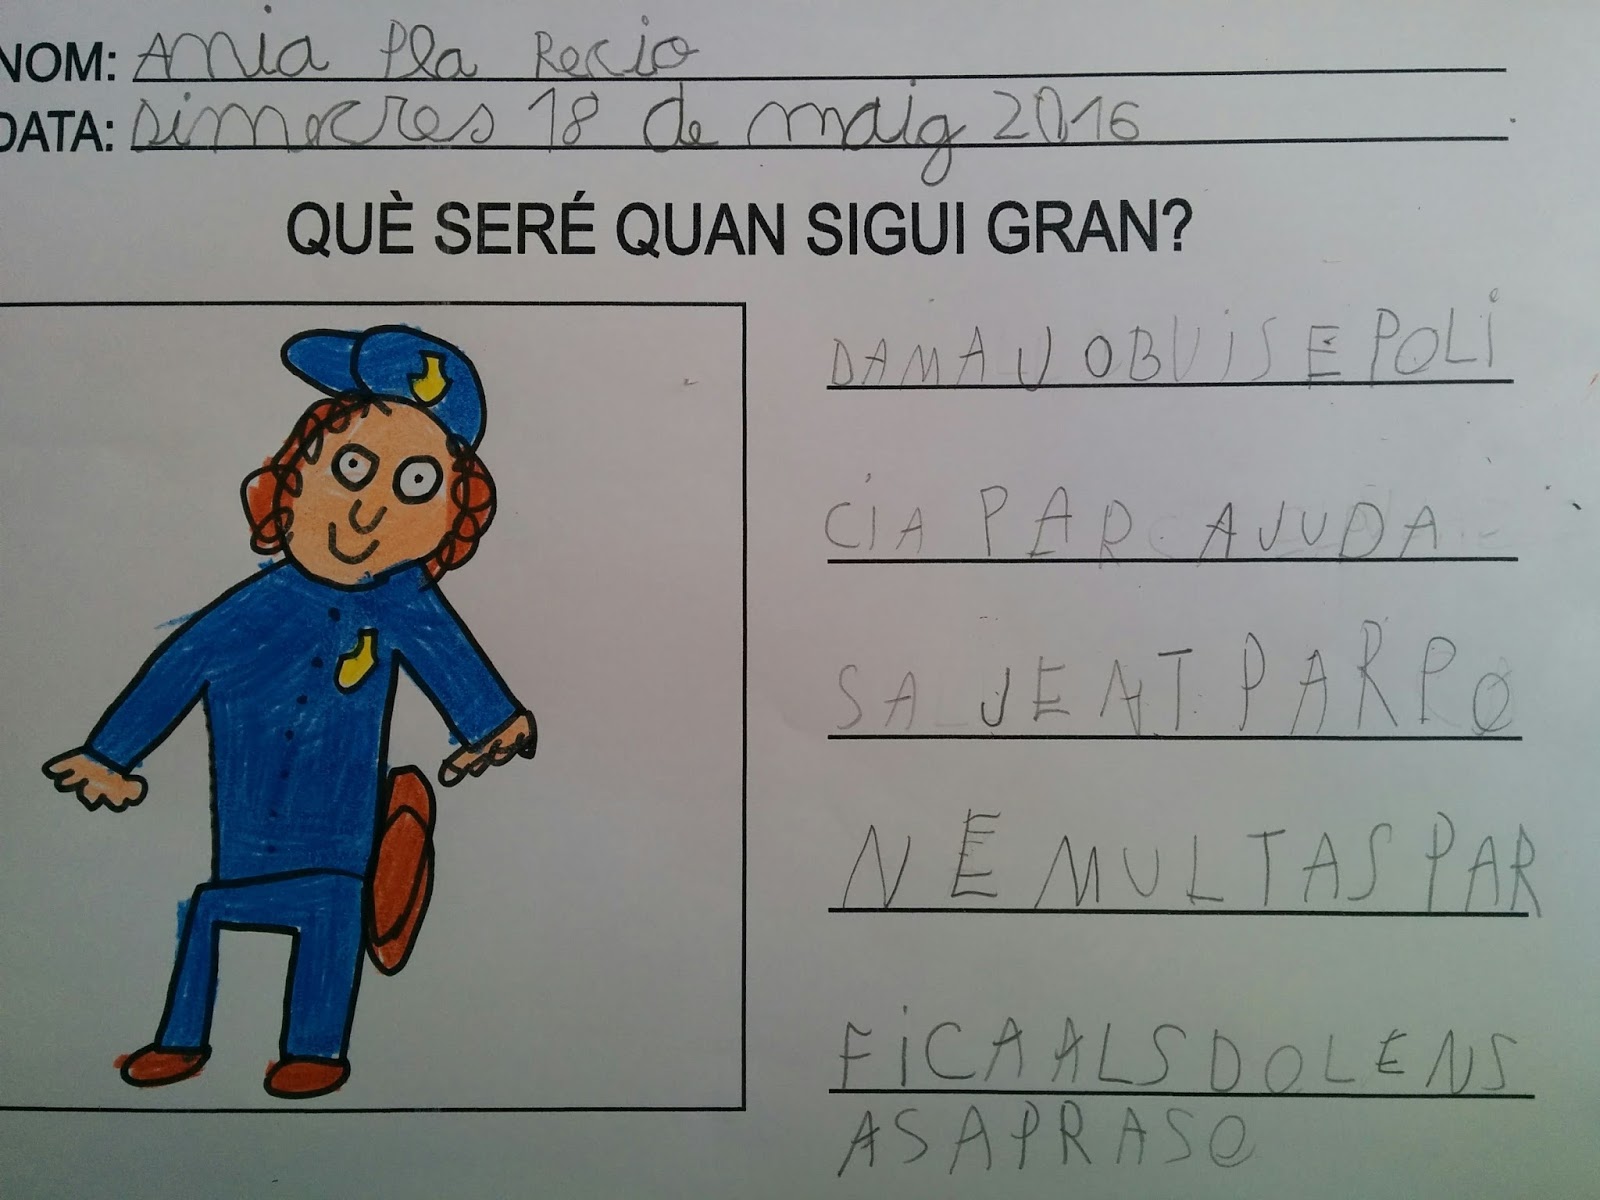 NOM: Ania Pla Recio
DATA: Dimecres 18 de maig 2016
QUÈ SERÉ QUAN SIGUI GRAN?
DAMAU OBUISE POLI
CIA PAR AJUDA
SA JENT PAR PO
NE MULTAS PAR
FICA ALS DOLENS
ASAPRASO